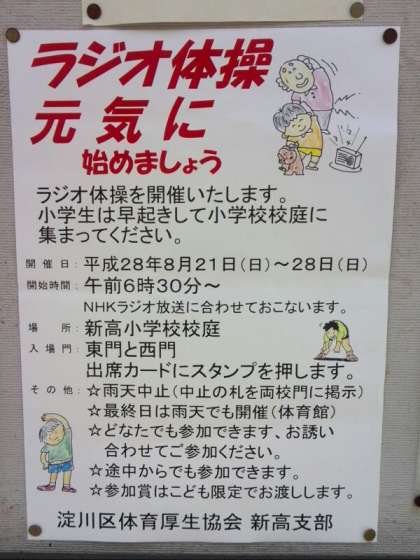 ラジオ体操
元気に
始めましょう
ラジオ体操を開催いたします。
小学生は早起きして小学校校庭に
集まってください。
開催日：平成28年8月21日(日)～28日(日)
開始時間：午前6時30分～
NHKラジオ放送に合わせておこないます。
場所：新高小学校校庭
入場門：東門と西門
出席カードにスタンプを押します。
その他：☆雨天中止(中止の札を両校門に掲示)
☆最終日は雨天でも開催(体育館)
☆どなたでも参加できます、お誘い
合わせてご参加ください。
☆途中からでも参加できます。
☆参加賞はこども限定でお渡しします。
淀川区体育厚生協会 新高支部